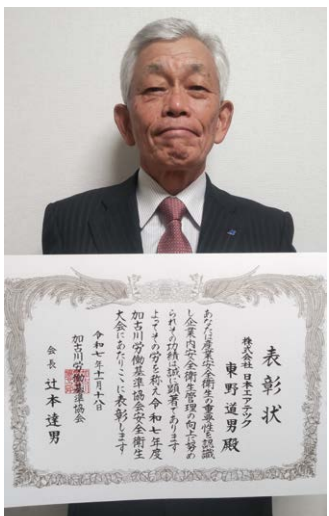 表彰状
株式会社 日本エアテック
東野道男殿
あなたは産業安全衛生の重要性を認識
し企業内安全衛生管理の向上に努め
られその功績は誠に顕著であります
よってその労を称え令和七年度
加古川労働基準協会安全衛生
大会にあたりここに表彰します
令和七年十月十八日
加古川労働基準協会
会長 辻本達男